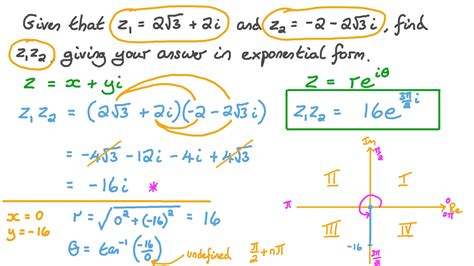 Given that z₁ = 2√3 + 2i and z₂ = -2 - 2√3 i, find
z₁z₂, giving your answer in exponential form.
z = x + yi
z = re^{iθ}
z₁z₂ = (2√3 + 2i)(-2 - 2√3 i)
z₁z₂ = 16e^{3π/2 i}
= -4√3 - 12i - 4i + 4√3
= -16i *
x = 0
y = -16
r = √(0² + (-16)²) = 16
θ = tan⁻¹(-16/0) undefined π/2 + nπ
Im
π/2
II I
π 0 Re
2π
III IV
-16
3π/2